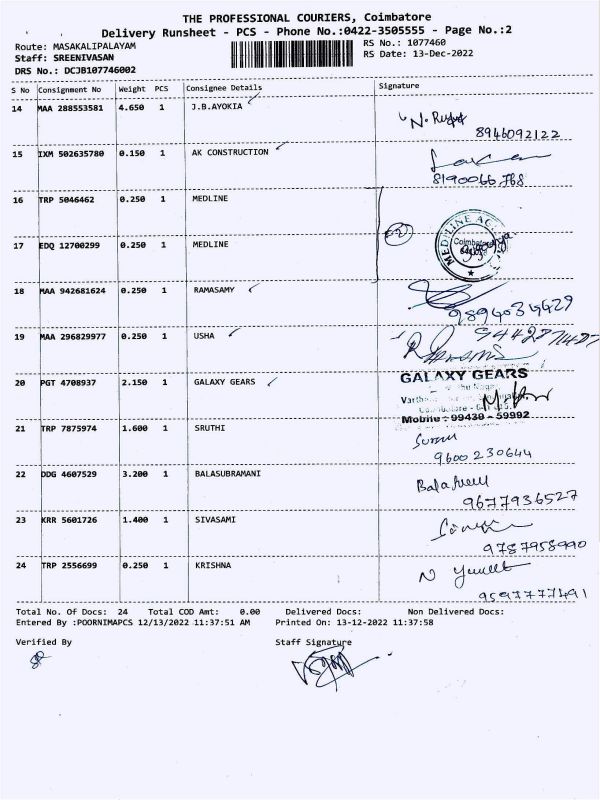 THE PROFESSIONAL COURIERS, Coimbatore
Delivery Runsheet - PCS - Phone No.:0422-3505555 - Page No.:2
Route: MASAKALIPALAYAM RS No.: 1077460
Staff: SREENIVASAN RS Date: 13-Dec-2022
DRS No.: DCJB107746002
S No Consignment No Weight PCS Consignee Details Signature
14 MAA 288553581 4.650 1 J.B.AYOKIA
8946092122
15 IXM 502635780 0.150 1 AK CONSTRUCTION
8190066768
16 TRP 5046462 0.250 1 MEDLINE
17 EDQ 12700299 0.250 1 MEDLINE
18 MAA 942681624 0.250 1 RAMASAMY
19 MAA 296829977 0.250 1 USHA
20 PGT 4708937 2.150 1 GALAXY GEARS
GALAXY GEARS
Mobile : 99430 - 59992
21 TRP 7875974 1.600 1 SRUTHI
9600230644
22 DDG 4607529 3.200 1 BALASUBRAMANI
9677936527
23 KRR 5601726 1.400 1 SIVASAMI
9787958990
24 TRP 2556699 0.250 1 KRISHNA
9597777491
Total No. Of Docs: 24 Total COD Amt: 0.00 Delivered Docs: Non Delivered Docs:
Entered By :POORNIMAPCS 12/13/2022 11:37:51 AM Printed On: 13-12-2022 11:37:58
Verified By Staff Signature